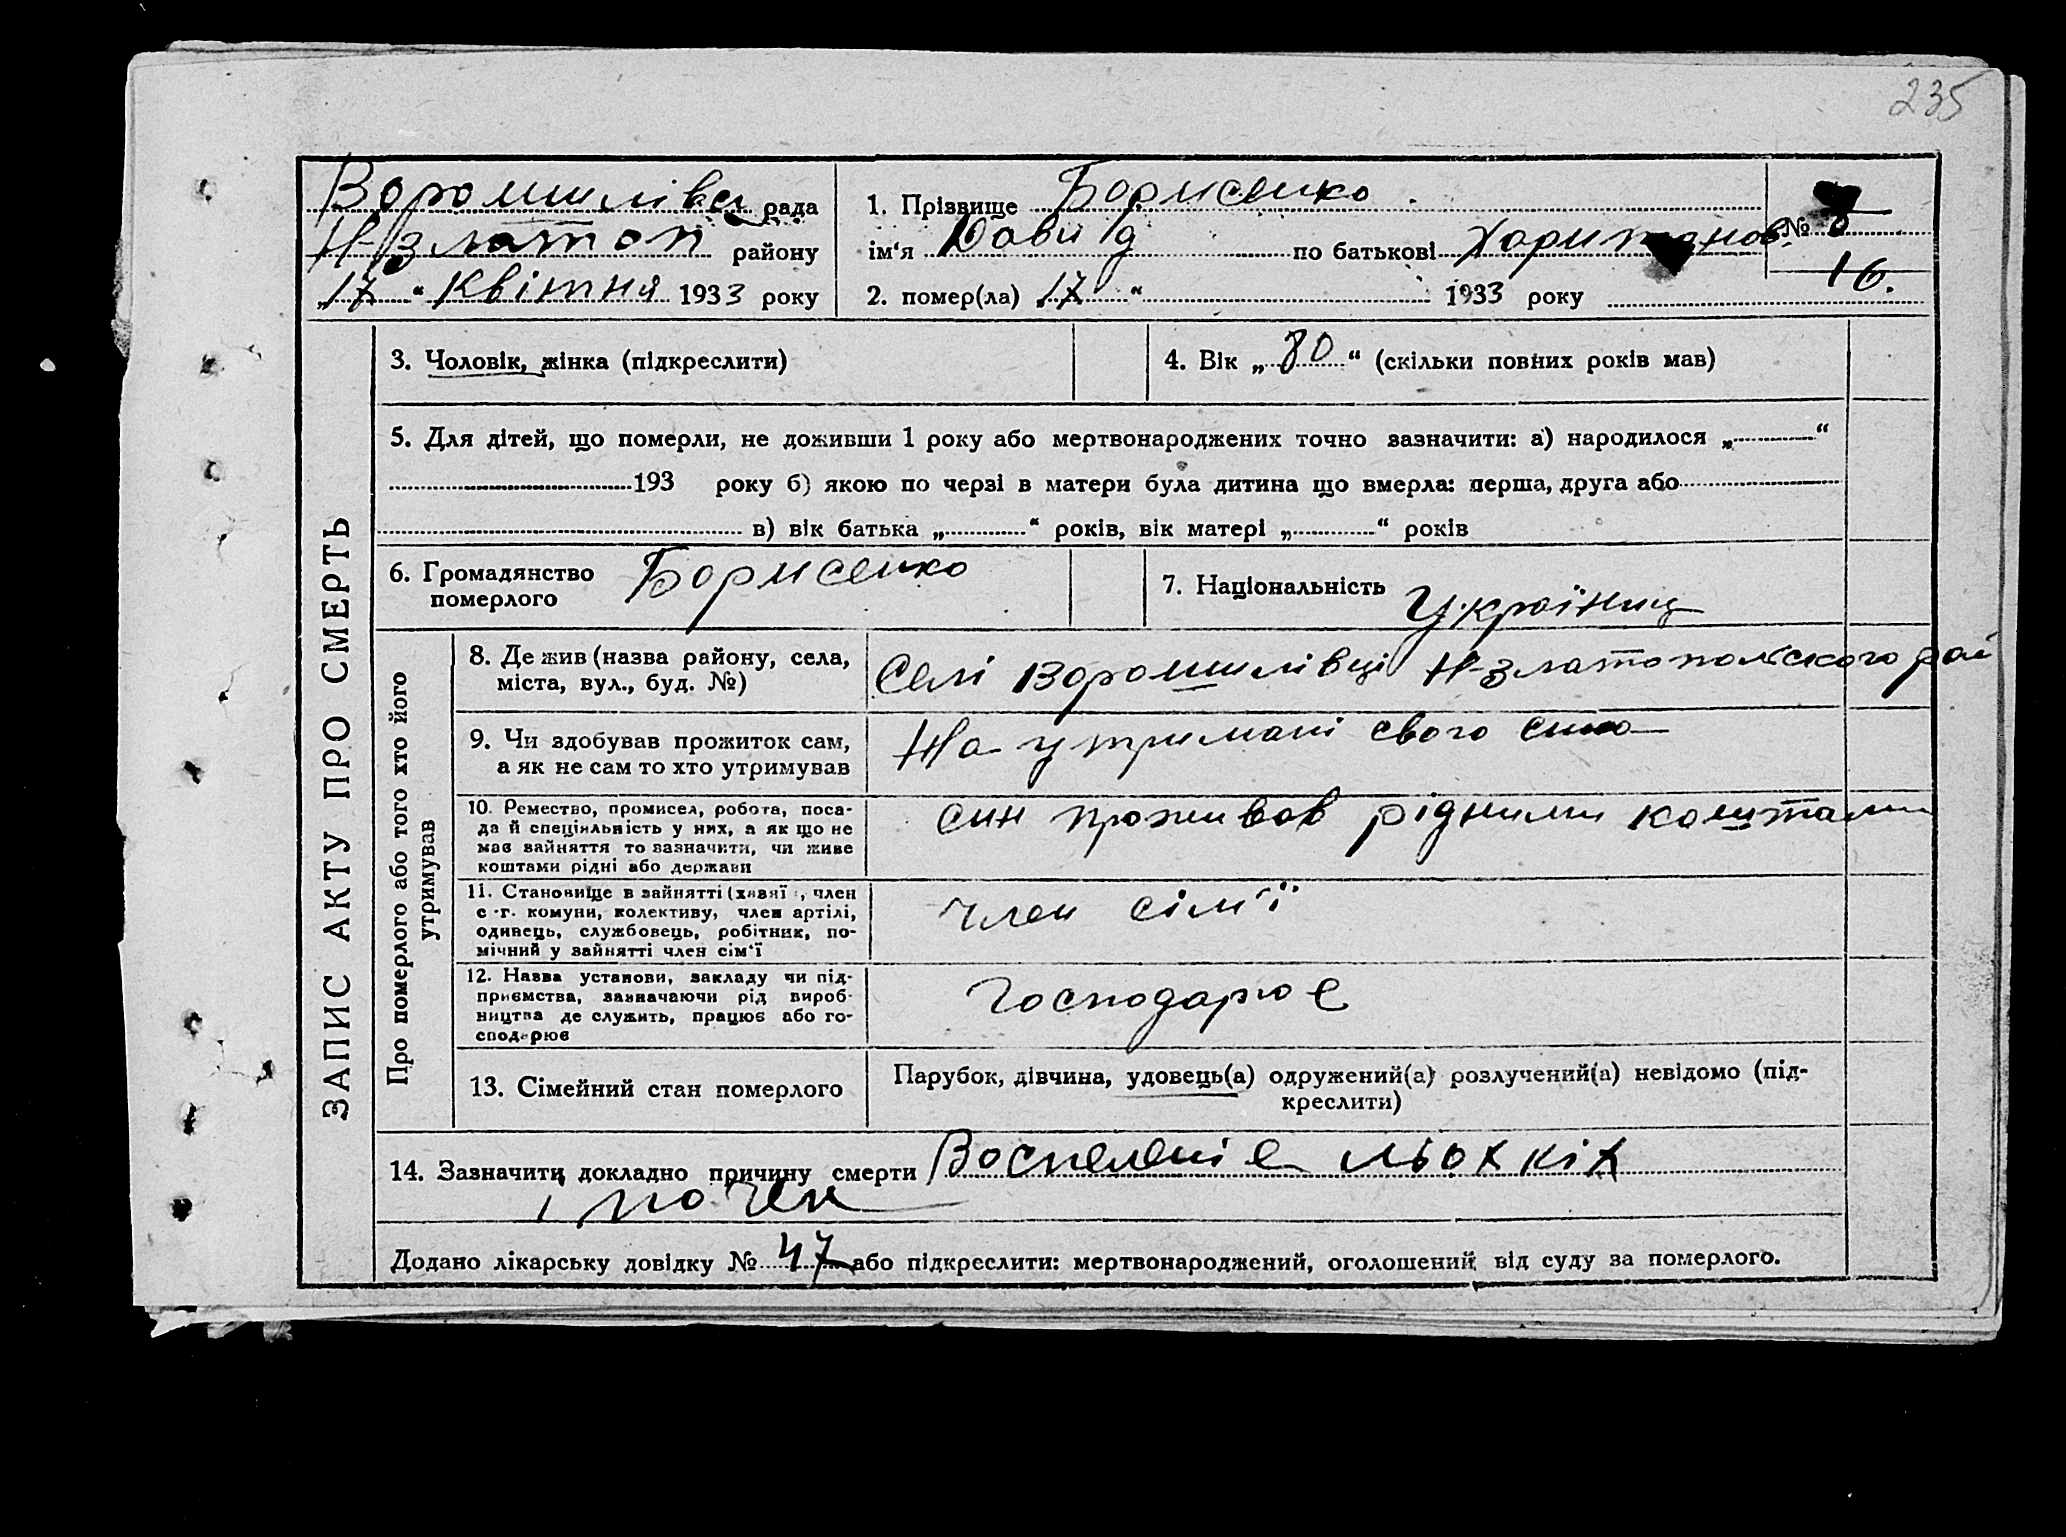 235
Воромшилівса рада
Н-златоп району
„17“ Квітня 1933 року
1. Прізвище Борисенко
ім‘я Давид по батькові Харитонов. № 8
2. помер(ла) 17 “ 1933 року 16.
ЗАПИС АКТУ ПРО СМЕРТЬ
3. Чоловік, жінка (підкреслити)
4. Вік „80“ (скільки повних років мав)
5. Для дітей, що померли, не доживши 1 року або мертвонароджених точно зазначити: а) народилося „ “
193 року б) якою по черзі в матери була дитина що вмерла: перша, друга або
в) вік батька „ “ років, вік матері „ “ років
6. Громадянство померлого Борисенко
7. Національність Українец
Про померлого або того хто його утримував
8. Де жив (назва району, села,
міста, вул., буд. №)
Селі Воромшилівці Н-златопольского рай
9. Чи здобував прожиток сам,
а як не сам то хто утримував
На утримані свого сина
10. Ремество, промисел, робота, поса-
да й спеціяльність у них, а як що не
має зайняття то зазначити, чи живе
коштами рідні або держави
син проживав рідними коштами
11. Становище в зайнятті (хазяї , член
с-г. комуни, колективу, член артілі,
одинець, службовець, робітник, по-
мічний у зайнятті член сім‘ї
член сім‘ї
12. Назва установи, закладу чи під-
приємства, зазначаючи рід вироб-
ництва де служить, працює або го-
сподарює
Господарює
13. Сімейний стан померлого
Парубок, дівчина, удовець(а) одружений(а) розлучений(а) невідомо (під-
креслити)
14. Зазначити докладно причину смерти Воспеленіе льохкіх
і почек
Додано лікарську довідку № 47 або підкреслити: мертвонароджений, оголошений від суду за померлого.